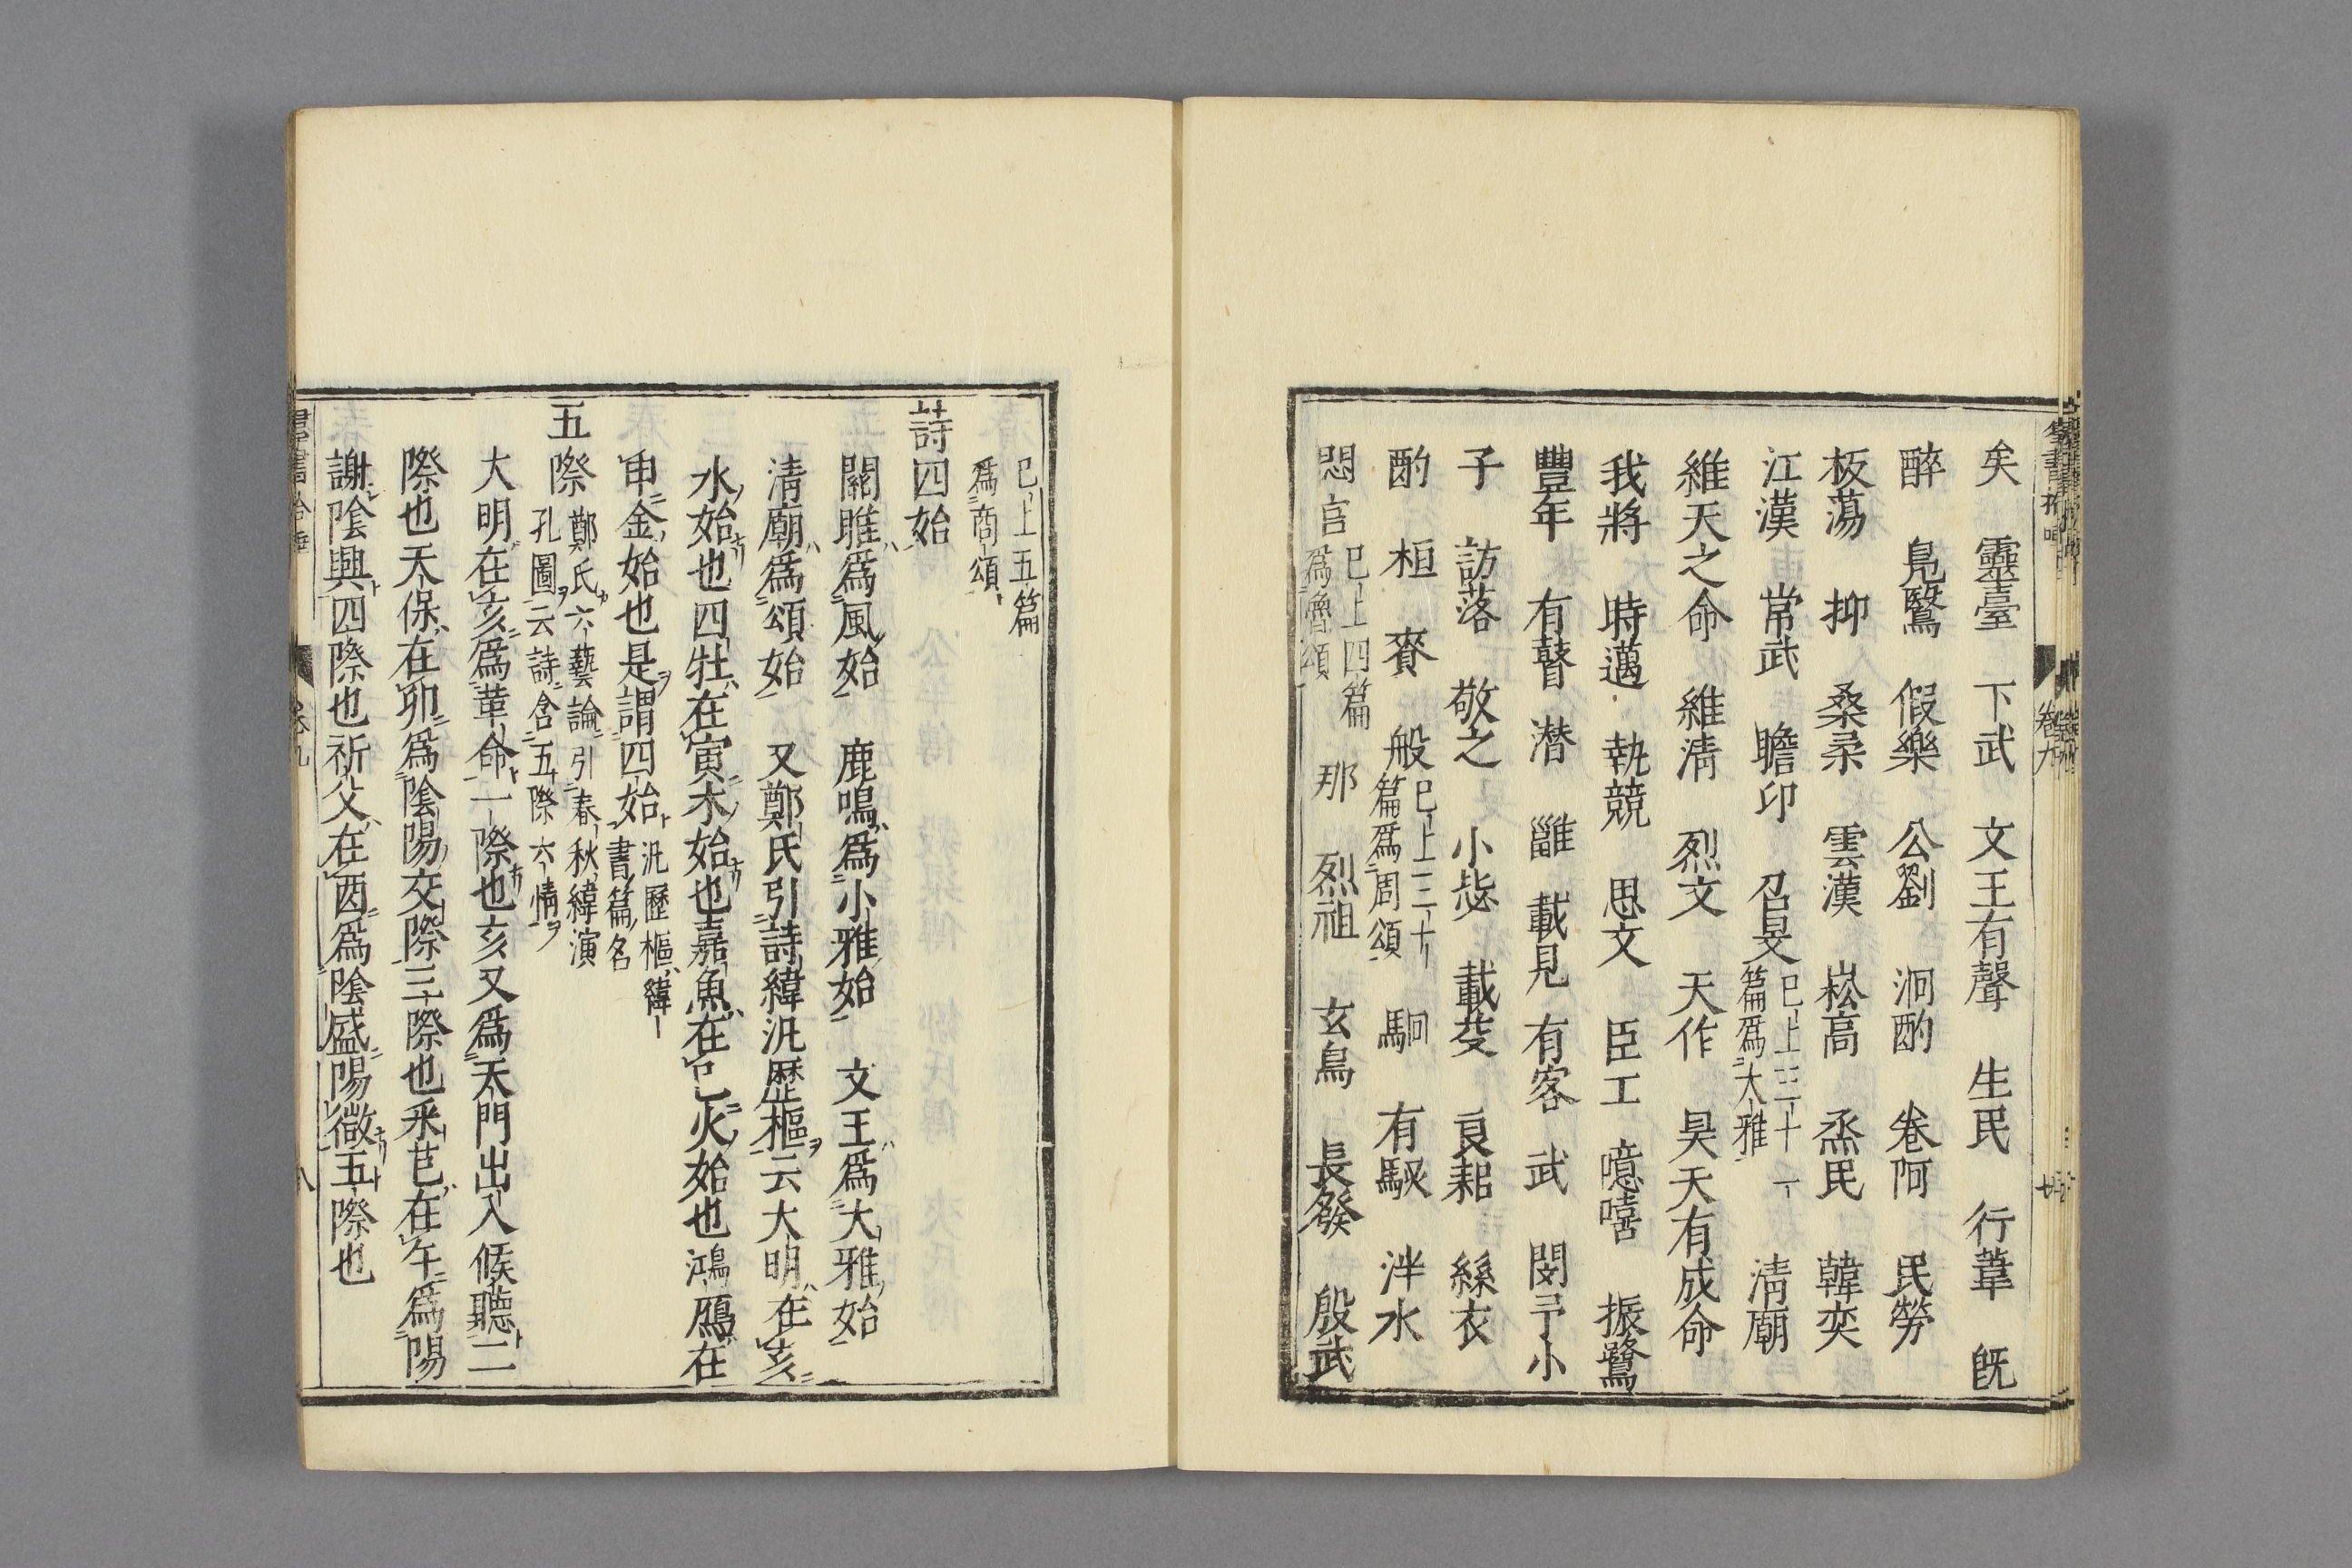 矣　靈臺　下武　文王有聲　生民　行葦　旣
醉　鳧鷖　假樂　公劉　洞酌　卷阿　民勞
板蕩　抑　桑柔　雲漢　崧高　烝民　韓奕
江漢　常武　瞻卬　召旻　已上三十一
篇爲大雅　清廟
維天之命　維清　烈文　天作　昊天有成命
我將　時邁　執競　思文　臣工　噫嘻　振鷺
豐年　有瞽　潜　雝　載見　有客　武　閔予小
子　訪落　敬之　小毖　載芟　良耜　絲衣
酌　桓　賚　般　已上三十一
篇爲周頌　駉　有駜　泮水
閟宮　已上四篇
爲魯頌　那　烈祖　玄鳥　長發　殷武
已上五篇
爲商頌
詩四始
關雎爲風始　鹿鳴爲小雅始　文王爲大雅始
清廟爲頌始　又鄭氏引詩緯汎歷樞云大明在亥
水始也四牡在寅木始也嘉魚在巳火始也鴻鴈在
申金始也是謂四始　汎歷樞緯
書篇名
五際　鄭氏六藝論引春秋緯演
孔圖云詩含五際六情
大明在亥爲革命一際也亥又爲天門出入候聽二
際也天保在卯爲陰陽交際三際也采芑在午爲陽
謝陰興四際也祈父在酉爲陰盛陽微五際也
卷九